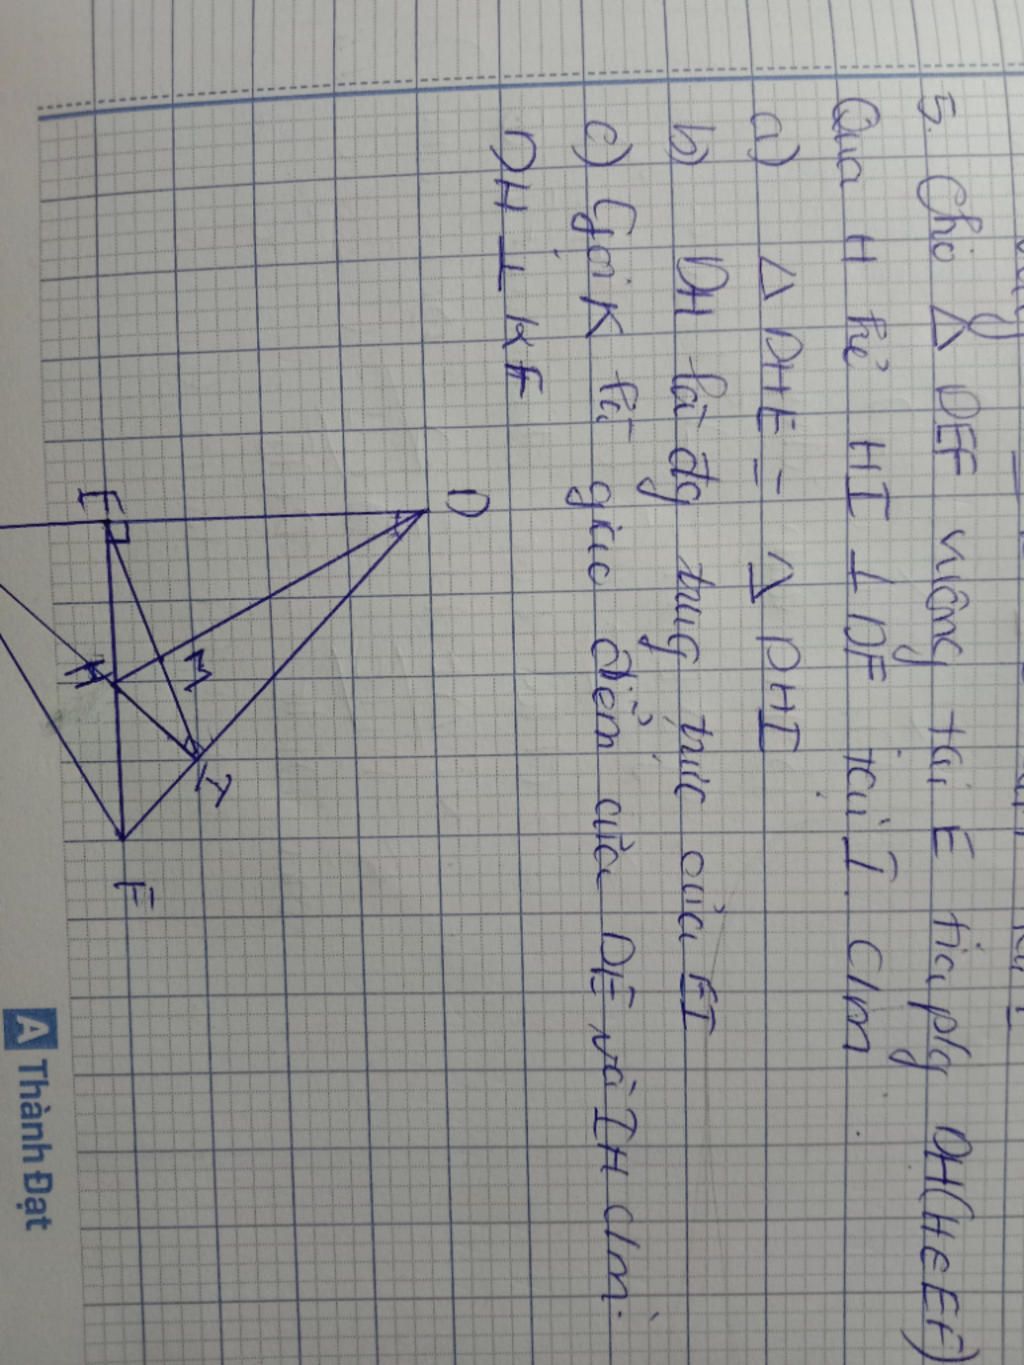 5. Cho Δ DEF vuông tại E tia phg DH(H∈EF)
Qua H kẻ HI ⊥ DF tại I. C/m
a) Δ DHE = Δ DHI
b) DH là đg trug trực của EI
c) Gọi K là giao điểm của DE và IH c/m:
DH ⊥ KF
D
E
M
H
I
F
A Thành Đạt